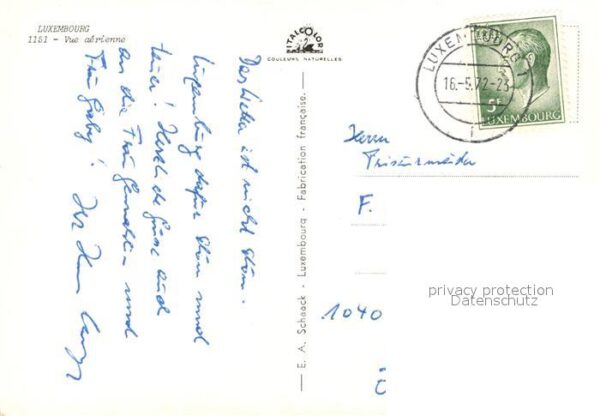 LUXEMBOURG
1151 - Vue aérienne
ITALCOLOR
COULEURS NATURELLES
E. A. Schaack - Luxembourg - Fabrication française.
LUXEMBOURG 1
16.-5.72-23
5F
LUXEMBOURG
Das Wetter ist nicht schön.
Luxemburg dafür schön und
teuer! Herzliche Grüsse auch
an die Frau Gemahlin und
Frau
Ihr
Herrn
Friseurmeister
F.
1040
privacy protection
Datenschutz